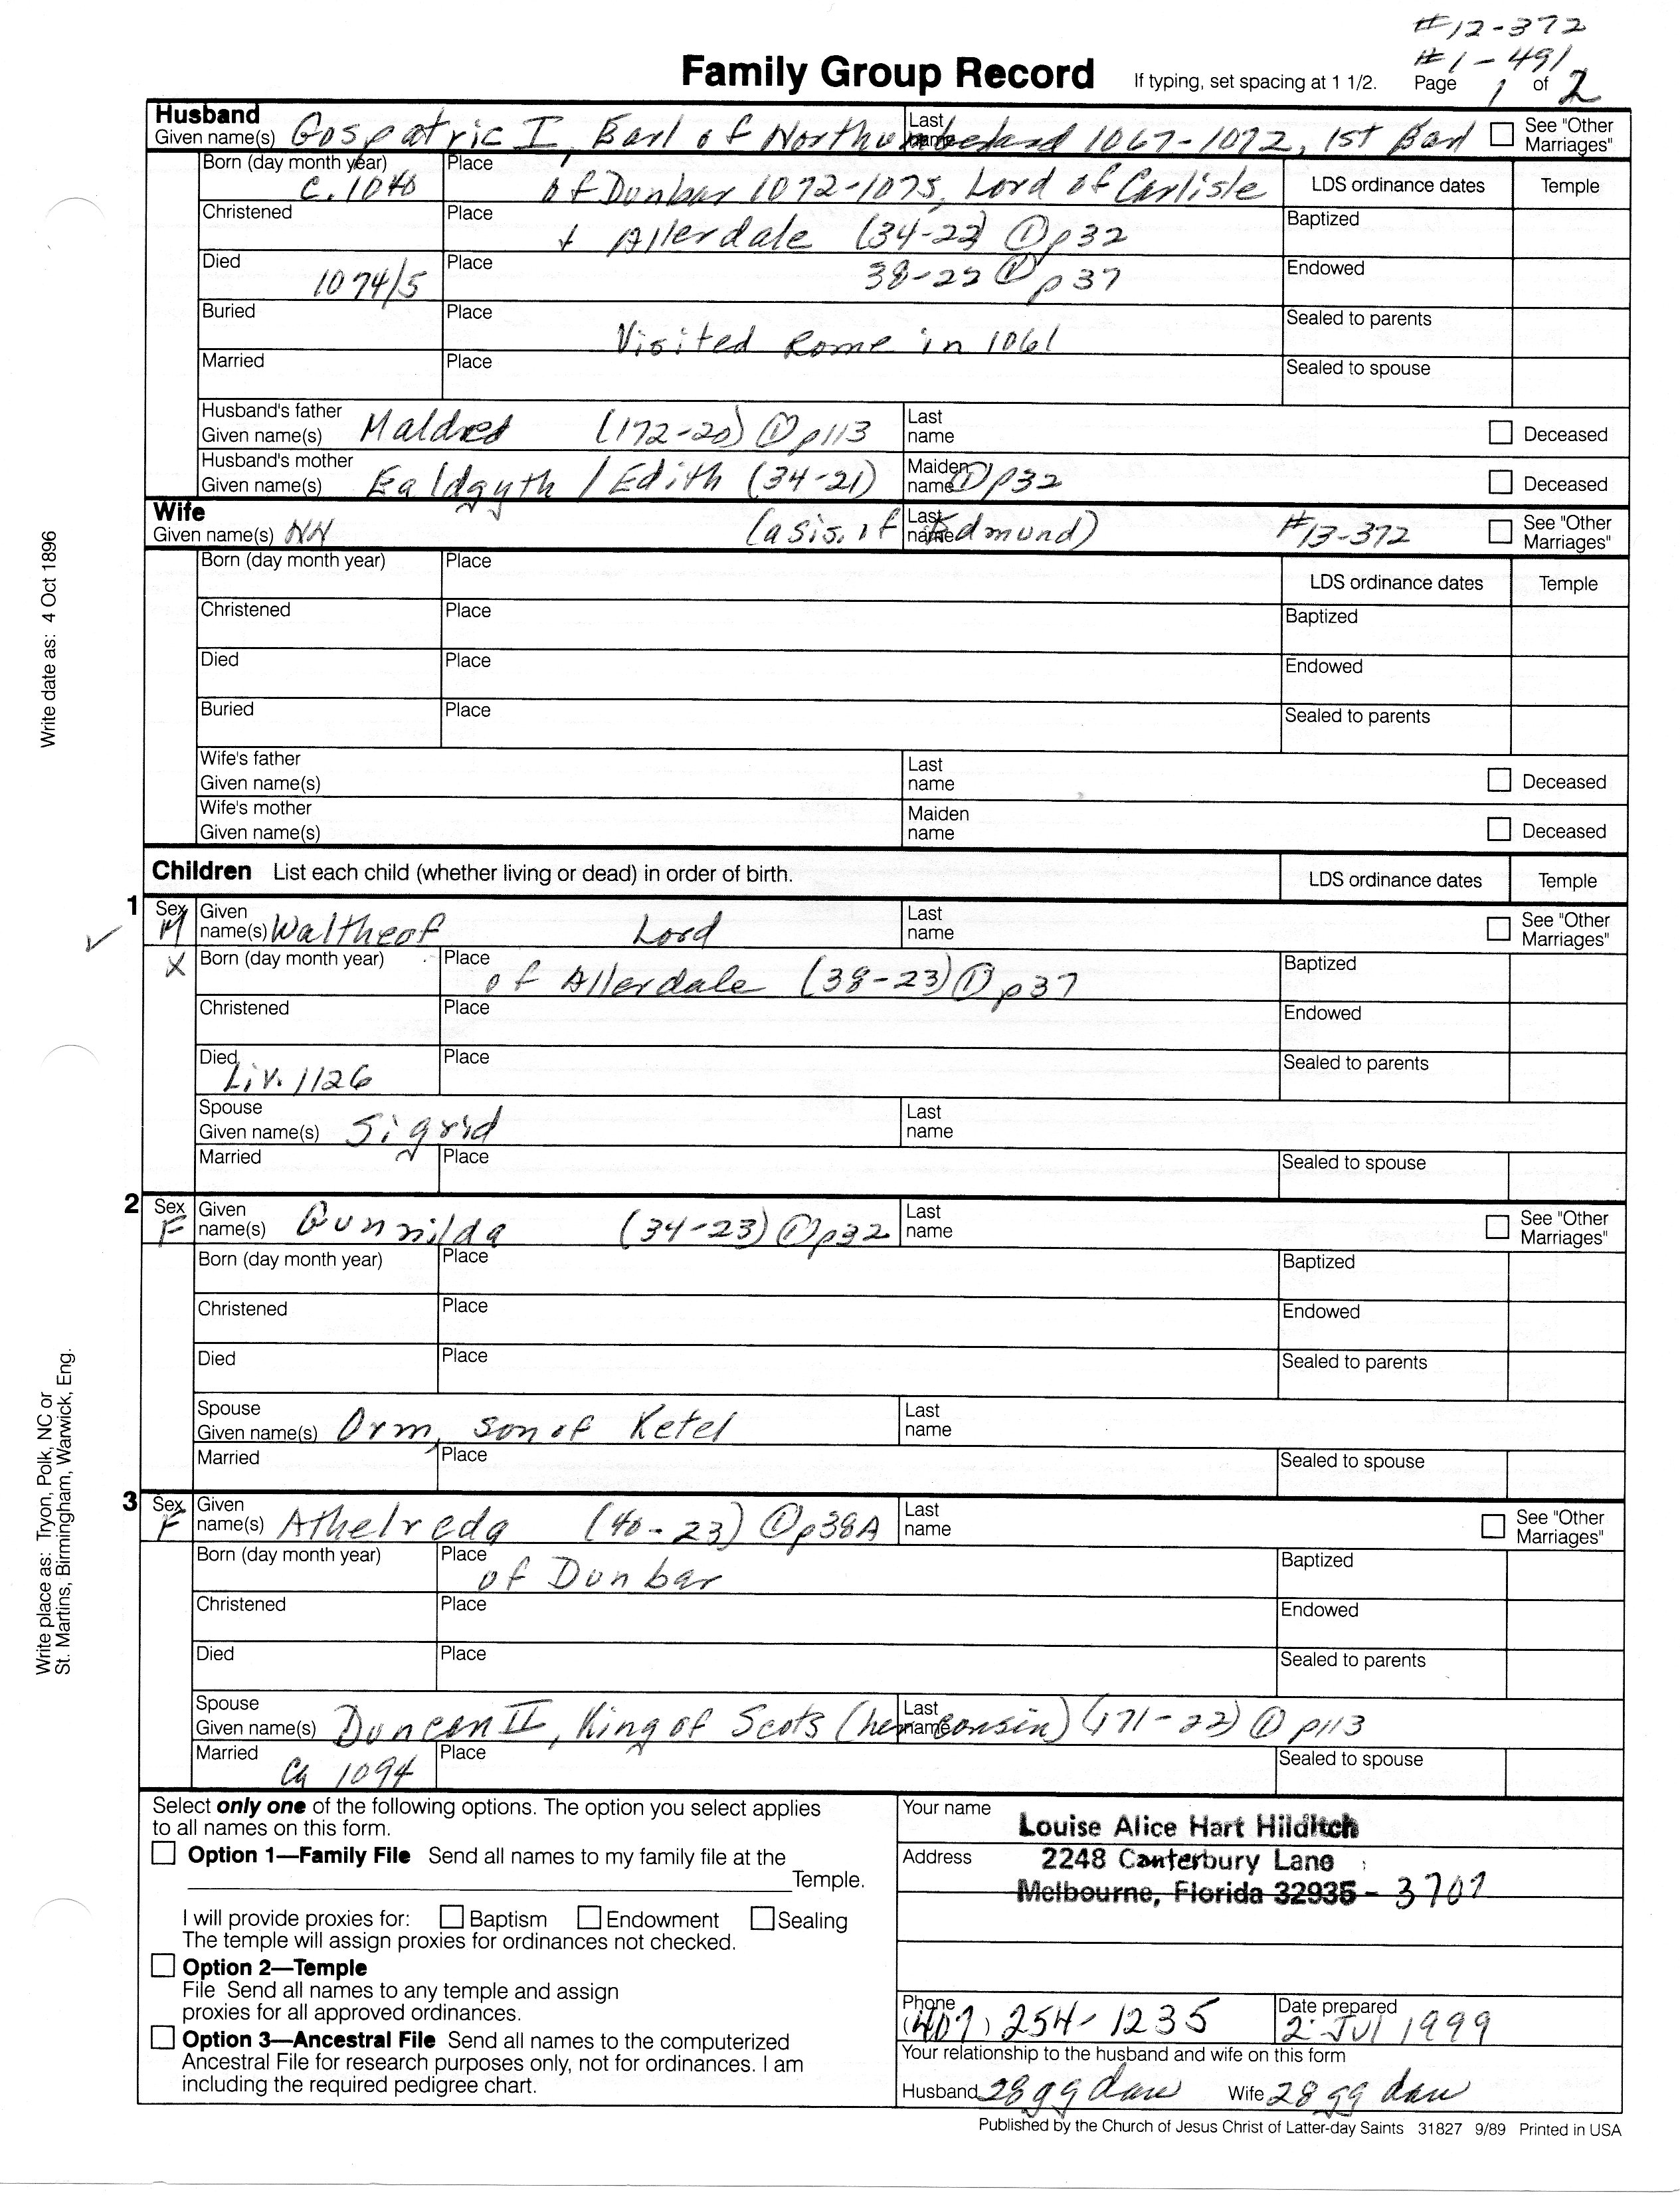 #12-372
#1-491
Family Group Record If typing, set spacing at 1 1/2. Page 1 of 2
Husband
Given name(s) Gospatric I, Earl of Northumbeland 1067-1072, 1st Earl Last name See "Other Marriages"
Born (day month year) c. 1040 Place of Dunbar 1072-1075, Lord of Carlisle LDS ordinance dates Temple
Christened Place & Allerdale (34-22) ① p32 Baptized
Died 1074/5 Place 38-22 ① p37 Endowed
Buried Place Visited Rome in 1061 Sealed to parents
Married Place Sealed to spouse
Husband's father
Given name(s) Maldred (172-20) ① p113 Last name Deceased
Husband's mother
Given name(s) Ealdgyth / Edith (34-21) Maiden name ① p32 Deceased
Wife
Given name(s) NN (a sis. of Edmund) Last name #13-372 See "Other Marriages"
Born (day month year) Place LDS ordinance dates Temple
Christened Place Baptized
Died Place Endowed
Buried Place Sealed to parents
Wife's father
Given name(s) Last name Deceased
Wife's mother
Given name(s) Maiden name Deceased
Children List each child (whether living or dead) in order of birth. LDS ordinance dates Temple
1 Sex M Given name(s) Waltheof Lord Last name See "Other Marriages"
X Born (day month year) Place of Allerdale (38-23) ① p37 Baptized
Christened Place Endowed
Died Liv. 1126 Place Sealed to parents
Spouse
Given name(s) Sigrid Last name
Married Place Sealed to spouse
2 Sex F Given name(s) Gunnilda (34-23) ① p32 Last name See "Other Marriages"
Born (day month year) Place Baptized
Christened Place Endowed
Died Place Sealed to parents
Spouse
Given name(s) Orm, son of Ketel Last name
Married Place Sealed to spouse
3 Sex F Given name(s) Athelreda (40-23) ① p38A Last name See "Other Marriages"
Born (day month year) Place of Dunbar Baptized
Christened Place Endowed
Died Place Sealed to parents
Spouse
Given name(s) Duncan II, King of Scots (her cousin) (171-22) ① p113 Last name
Married Ca 1094 Place Sealed to spouse
Select only one of the following options. The option you select applies
to all names on this form.
Option 1—Family File Send all names to my family file at the
Temple.
I will provide proxies for: Baptism Endowment Sealing
The temple will assign proxies for ordinances not checked.
Option 2—Temple
File Send all names to any temple and assign
proxies for all approved ordinances.
Option 3—Ancestral File Send all names to the computerized
Ancestral File for research purposes only, not for ordinances. I am
including the required pedigree chart.
Your name Louise Alice Hart Hilditch
Address 2248 Canterbury Lane
Melbourne, Florida 32935 - 3707
Phone (407) 254-1235 Date prepared 2 Jul 1999
Your relationship to the husband and wife on this form
Husband 28 gg dau Wife 28 gg dau
Published by the Church of Jesus Christ of Latter-day Saints 31827 9/89 Printed in USA
Write date as: 4 Oct 1896
Write place as: Tryon, Polk, NC or
St. Martins, Birmingham, Warwick, Eng.